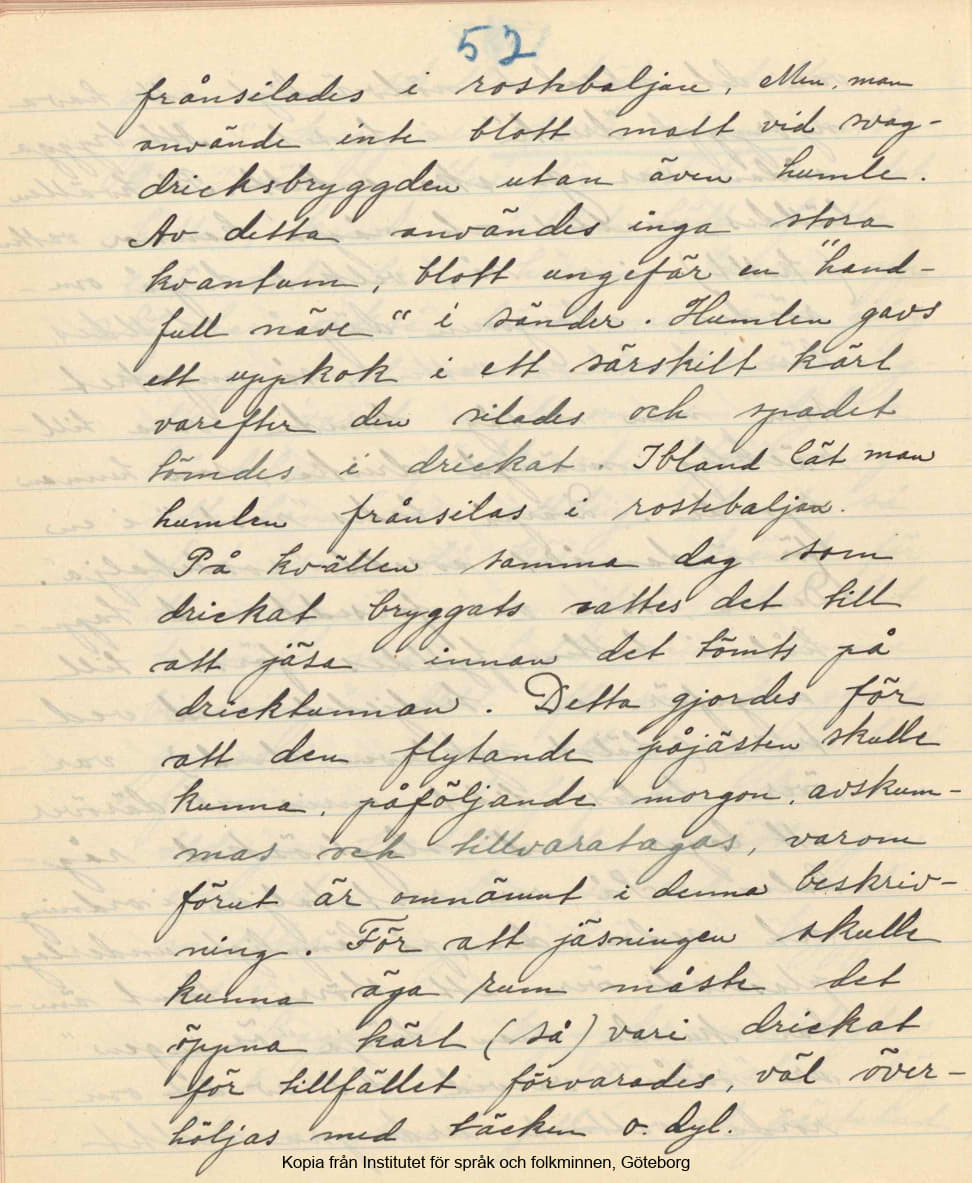 52
frånsilades i rostebaljan. Men, man
använde inte blott malt vid svag-
dricksbryggden utan även humle.
Av detta användes inga stora
kvantum, blott ungefär en "hand-
full näve" i sänder. Humlen gavs
ett uppkok i ett särskilt kärl
varefter den silades och spadet
tömdes i drickat. Ibland lät man
humlen frånsilas i rostebaljan.
På kvällen samma dag som
drickat bryggats sattes det till
att jäsa innan det tömts på
dricktunnan. Detta gjordes för
att den flytande påjästen skulle
kunna, påföljande morgon, avskum-
mas och tillvaratagas, varom
förut är omnämnt i denna beskriv-
ning. För att jäsningen skulle
kunna äga rum måste det
öppna kärl (så) vari drickat
för tillfället förvarades, väl över-
höljas med täcken o. dyl.
Kopia från Institutet för språk och folkminnen, Göteborg